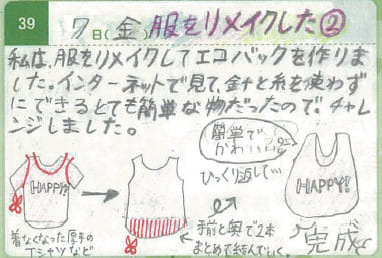 39
7日(金)服をリメイクした②
私は、服をリメイクしてエコバックを作りま
した。インターネットで見て、針と糸を使わず
にできるとても簡単な物だったので。チャレ
ンジしました。
簡単で
かわいい
ひっくり返して…
HAPPY!
HAPPY!
着なくなった厚手の
Tシャツなど
手前と奥で2本
まとめて結んでいく。
完成